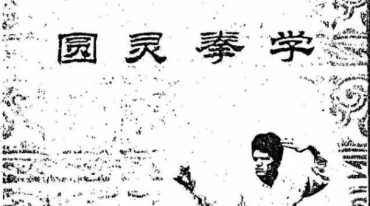 圆灵拳学